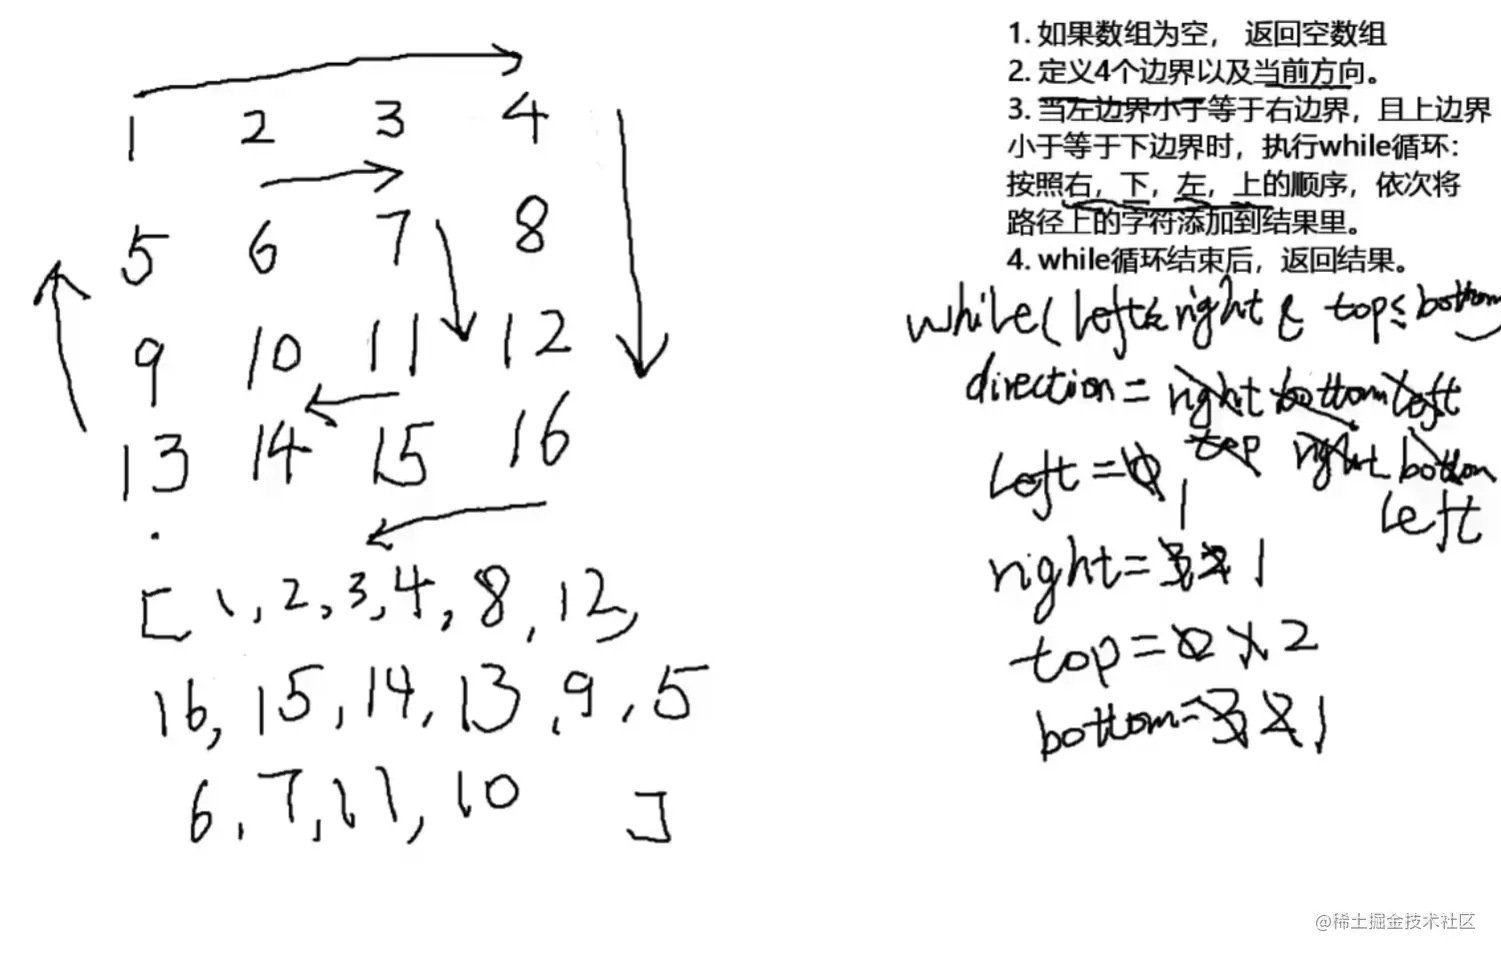 1 2 3 4
5 6 7 8
9 10 11 12
13 14 15 16
[ 1, 2, 3, 4, 8, 12,
16, 15, 14, 13, 9, 5
6, 7, 11, 10 ]
1. 如果数组为空， 返回空数组
2. 定义4个边界以及当前方向。
3. 当左边界小于等于右边界，且上边界
小于等于下边界时，执行while循环：
按照右，下，左，上的顺序，依次将
路径上的字符添加到结果里。
4. while循环结束后，返回结果。
while( left≤ right & top≤ bottom
direction = right bottom left
top right bottom
left
left = 0 1
right = 3 2 1
top = 0 1 2
bottom = 3 2 1
@稀土掘金技术社区